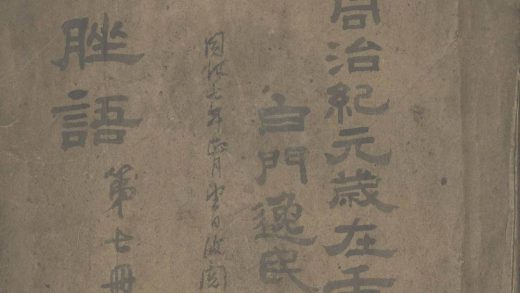 同治紀元歲在壬
白門逸民
同治七年正月望日
脞語 第七冊